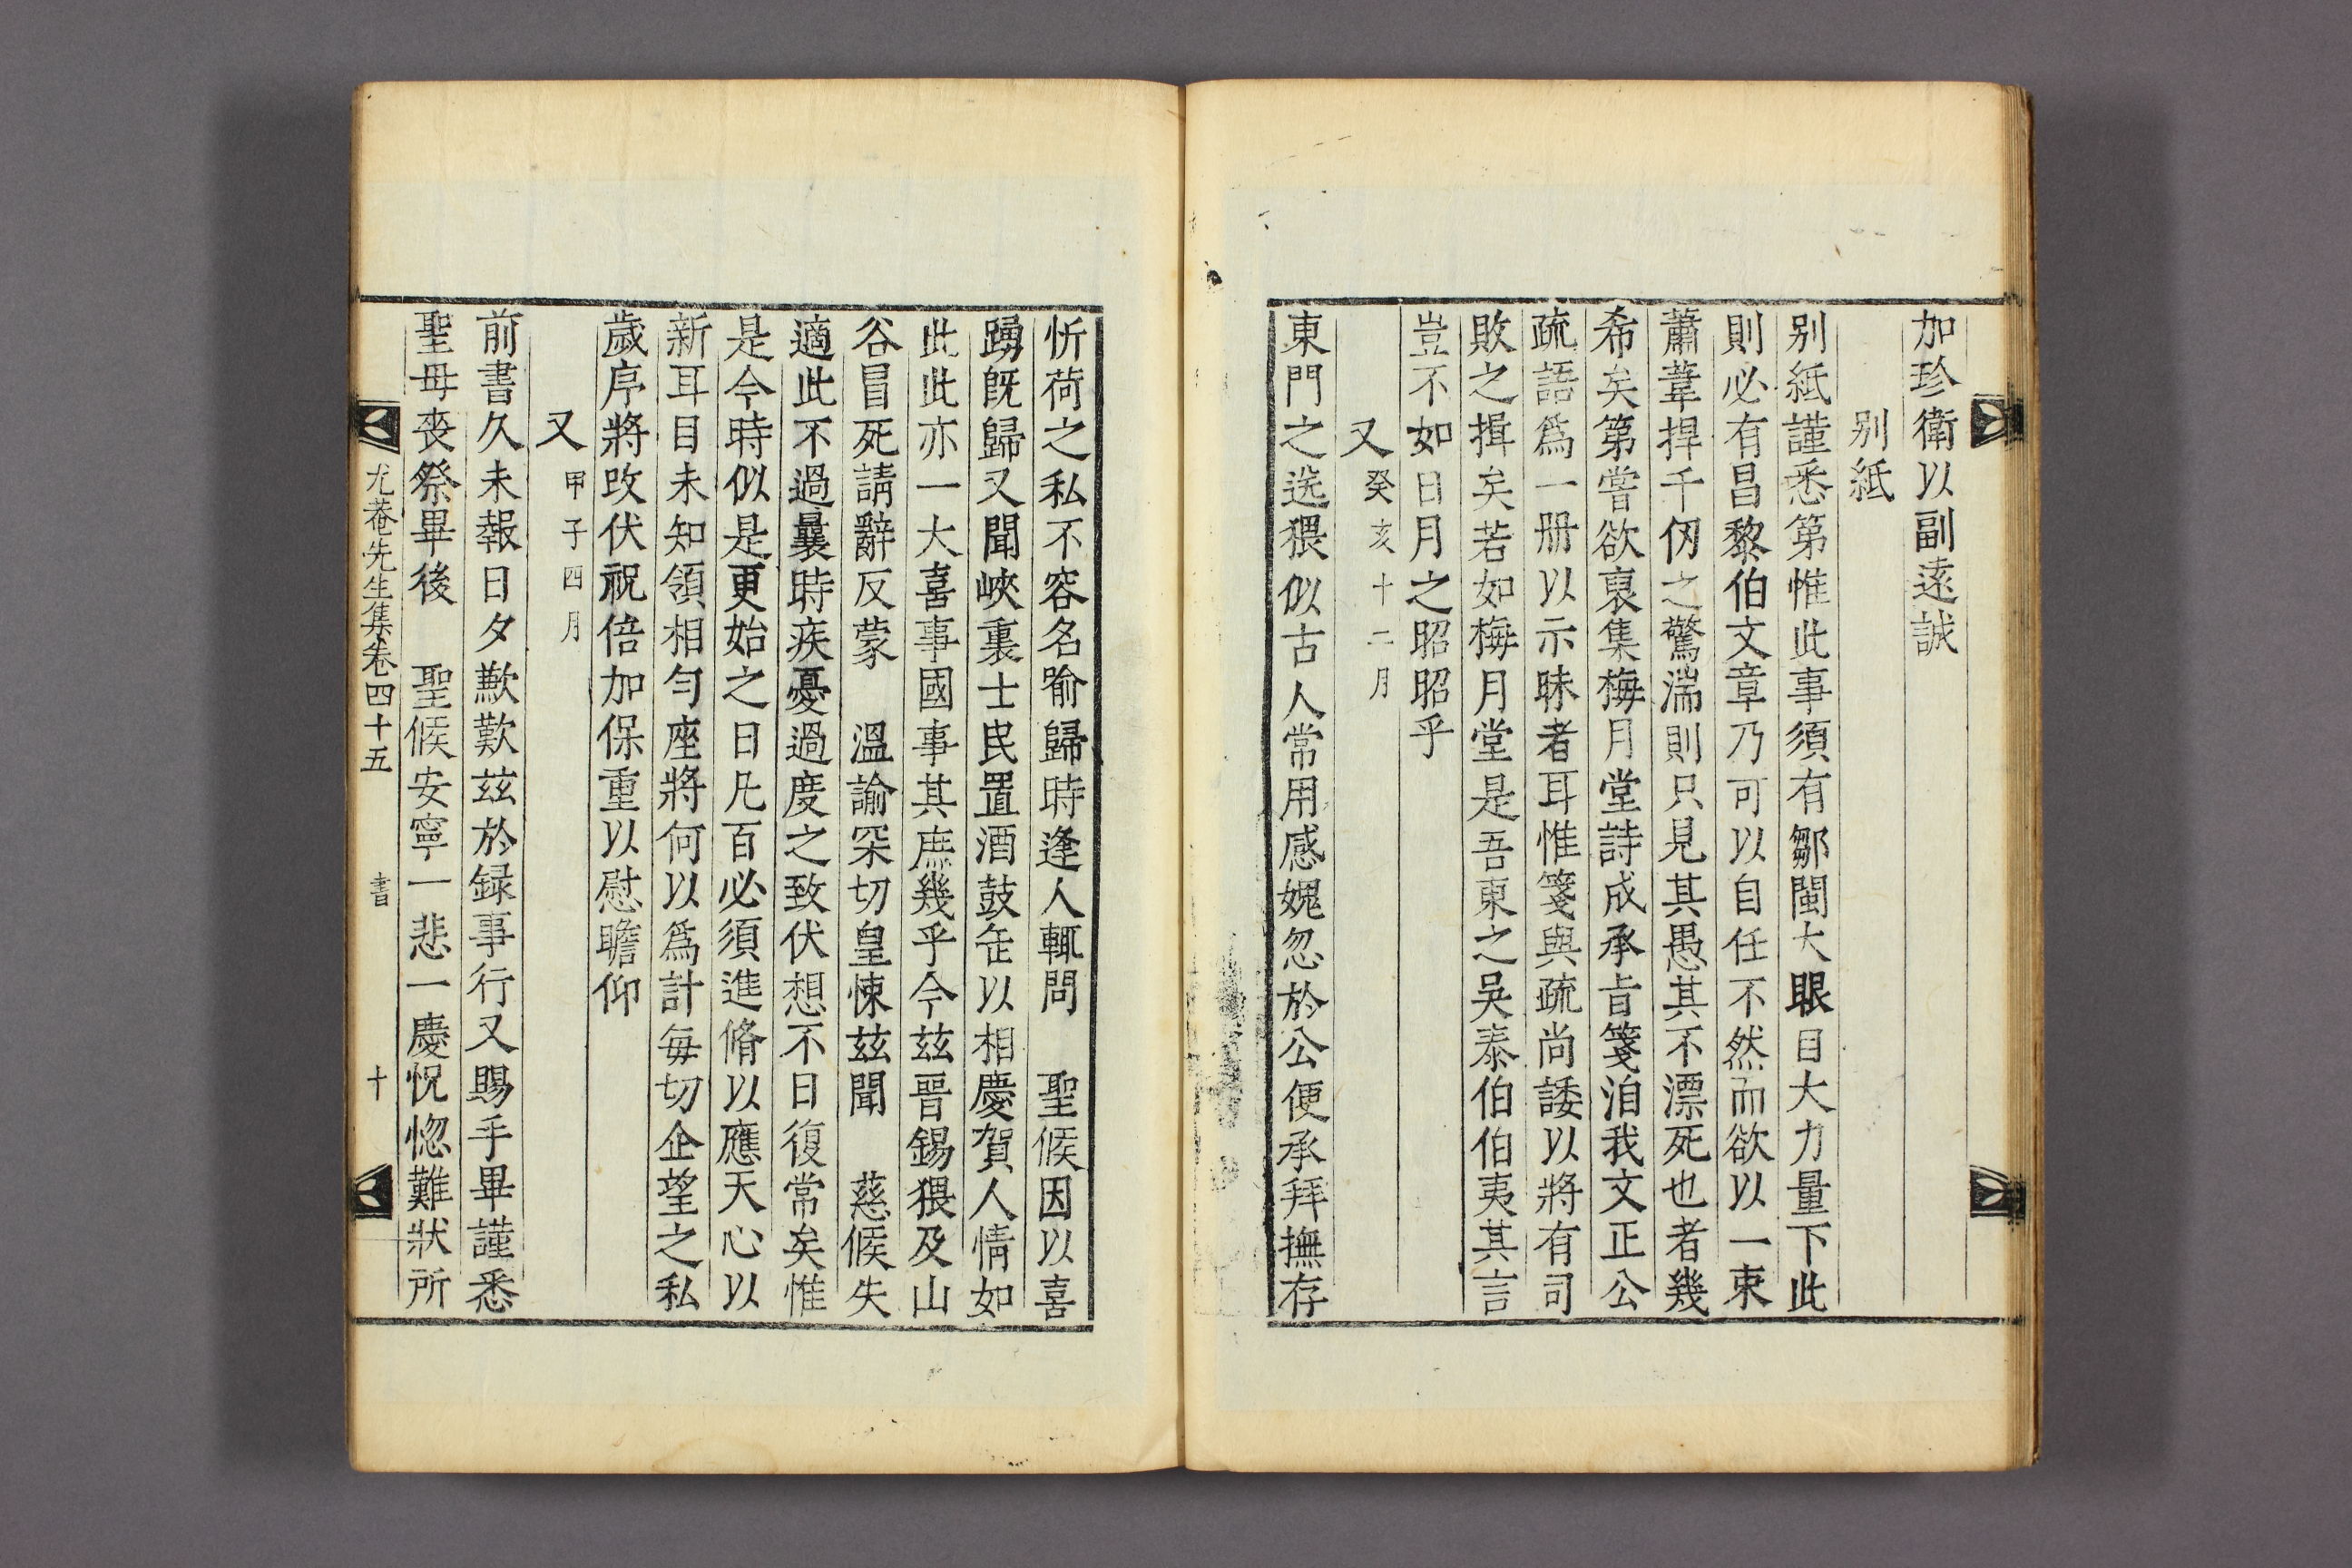 加珍衛以副遠誠
别紙
别紙謹悉第惟此事須有鄒閩大眼目大力量下此
則必有昌黎伯文章乃可以自任不然而欲以一束
蕭葦捍千仞之驚湍則只見其愚其不漂死也者幾
希矣第嘗欲裒集梅月堂詩成承旨箋洎我文正公
疏語爲一册以示昧者耳惟箋與疏尚諉以將有司
敗之揖矣若如梅月堂是吾東之吳泰伯伯夷其言
豈不如日月之昭昭乎
又癸亥十二月
東門之送猥似古人常用感媿忽於公便承拜撫存
忻荷之私不容名喻歸時逢人輒問 聖候因以喜
踴旣歸又聞峽裏士民置酒鼓缶以相慶賀人情如
此此亦一大喜事國事其庶幾乎今玆晉錫猥及山
谷冒死請辭反蒙 溫諭罙切皇悚玆聞 慈候失
適此不過曩時疾憂過度之致伏想不日復常矣惟
是今時似是更始之日凡百必須進脩以應天心以
新耳目未知領相勻座將何以爲計每切企望之私
歲序將改伏祝倍加保重以慰瞻仰
又甲子四月
前書久未報日夕歉歎玆於録事行又賜手畢謹悉
聖母喪祭畢後 聖候安寧一悲一慶怳惚難狀所
尤菴先生集卷四十五 書 十